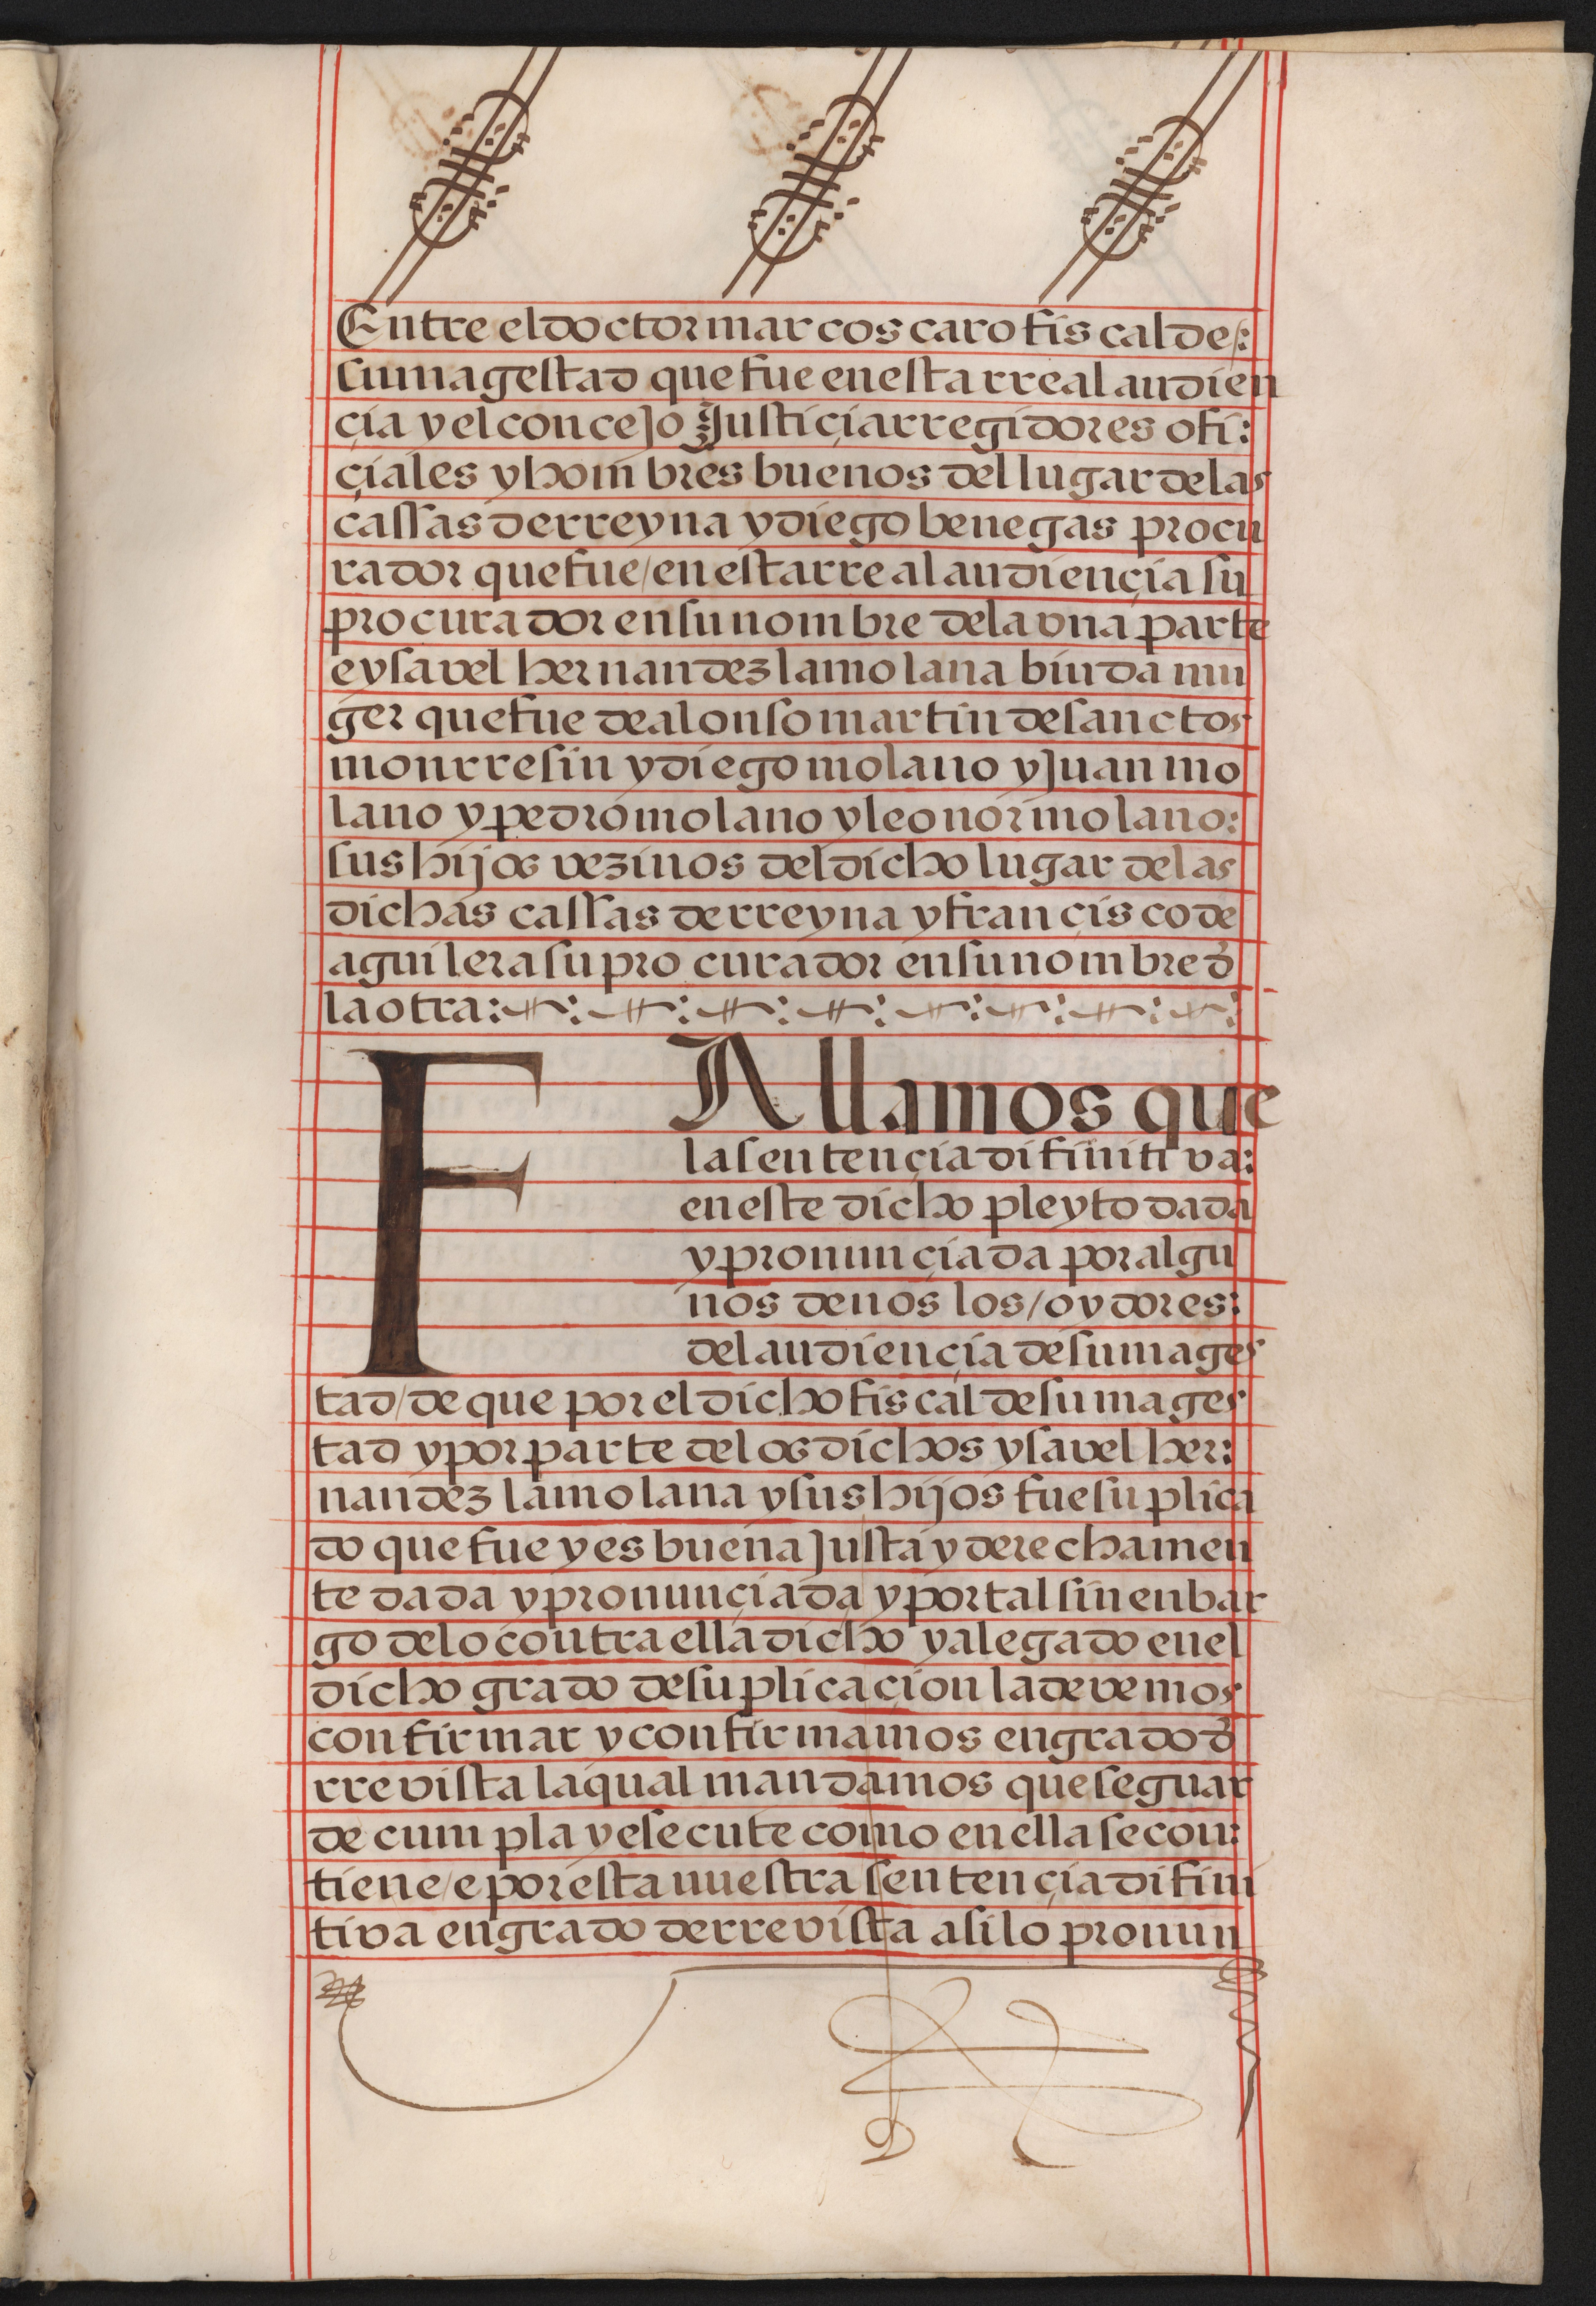 Entre el doctor marcos caro fiscal de/:
su magestad que fue en esta rreal audien
çia y el concejo Justiçia rregidores ofi:
çiales y hombres buenos del lugar de las
cassas de rreyna y diego benegas procu
rador que fue/en esta rreal audiençia su
procurador en su nombre de la vna parte
e ysavel hernandez la molana biuda mu
ger que fue de alonso martin de sanctos
monrresin y diego molano y Juan mo
lano y pedro molano y leonor molano:
sus hijos vezinos del dicho lugar de las
dichas cassas de rreyna y françisco de
aguilera su procurador en su nombre đ
la otra:
FAllamos que
la sentençia difinitiva:
en este dicho pleyto dada
y pronunçiada por algu
nos de nos los/oydores:
del audiençia de su mages
tad/de que por el dicho fiscal de su mages
tad y por parte de los dichos ysavel her:
nandez la molana y sus hijos fue suplica
do que fue y es buena Justa y derechamen
te dada y pronunçiada y por tal sin enbar
go de lo contra ella dicho y alegado en el
dicho grado de suplicaçion la devemos
confirmar y confirmamos en grado đ
rrevista la qual mandamos que se guar
de cumpla y esecute como en ella se con:
tiene/e por esta nuestra sentençia difini
tiva en grado de rrevista asi lo pronun